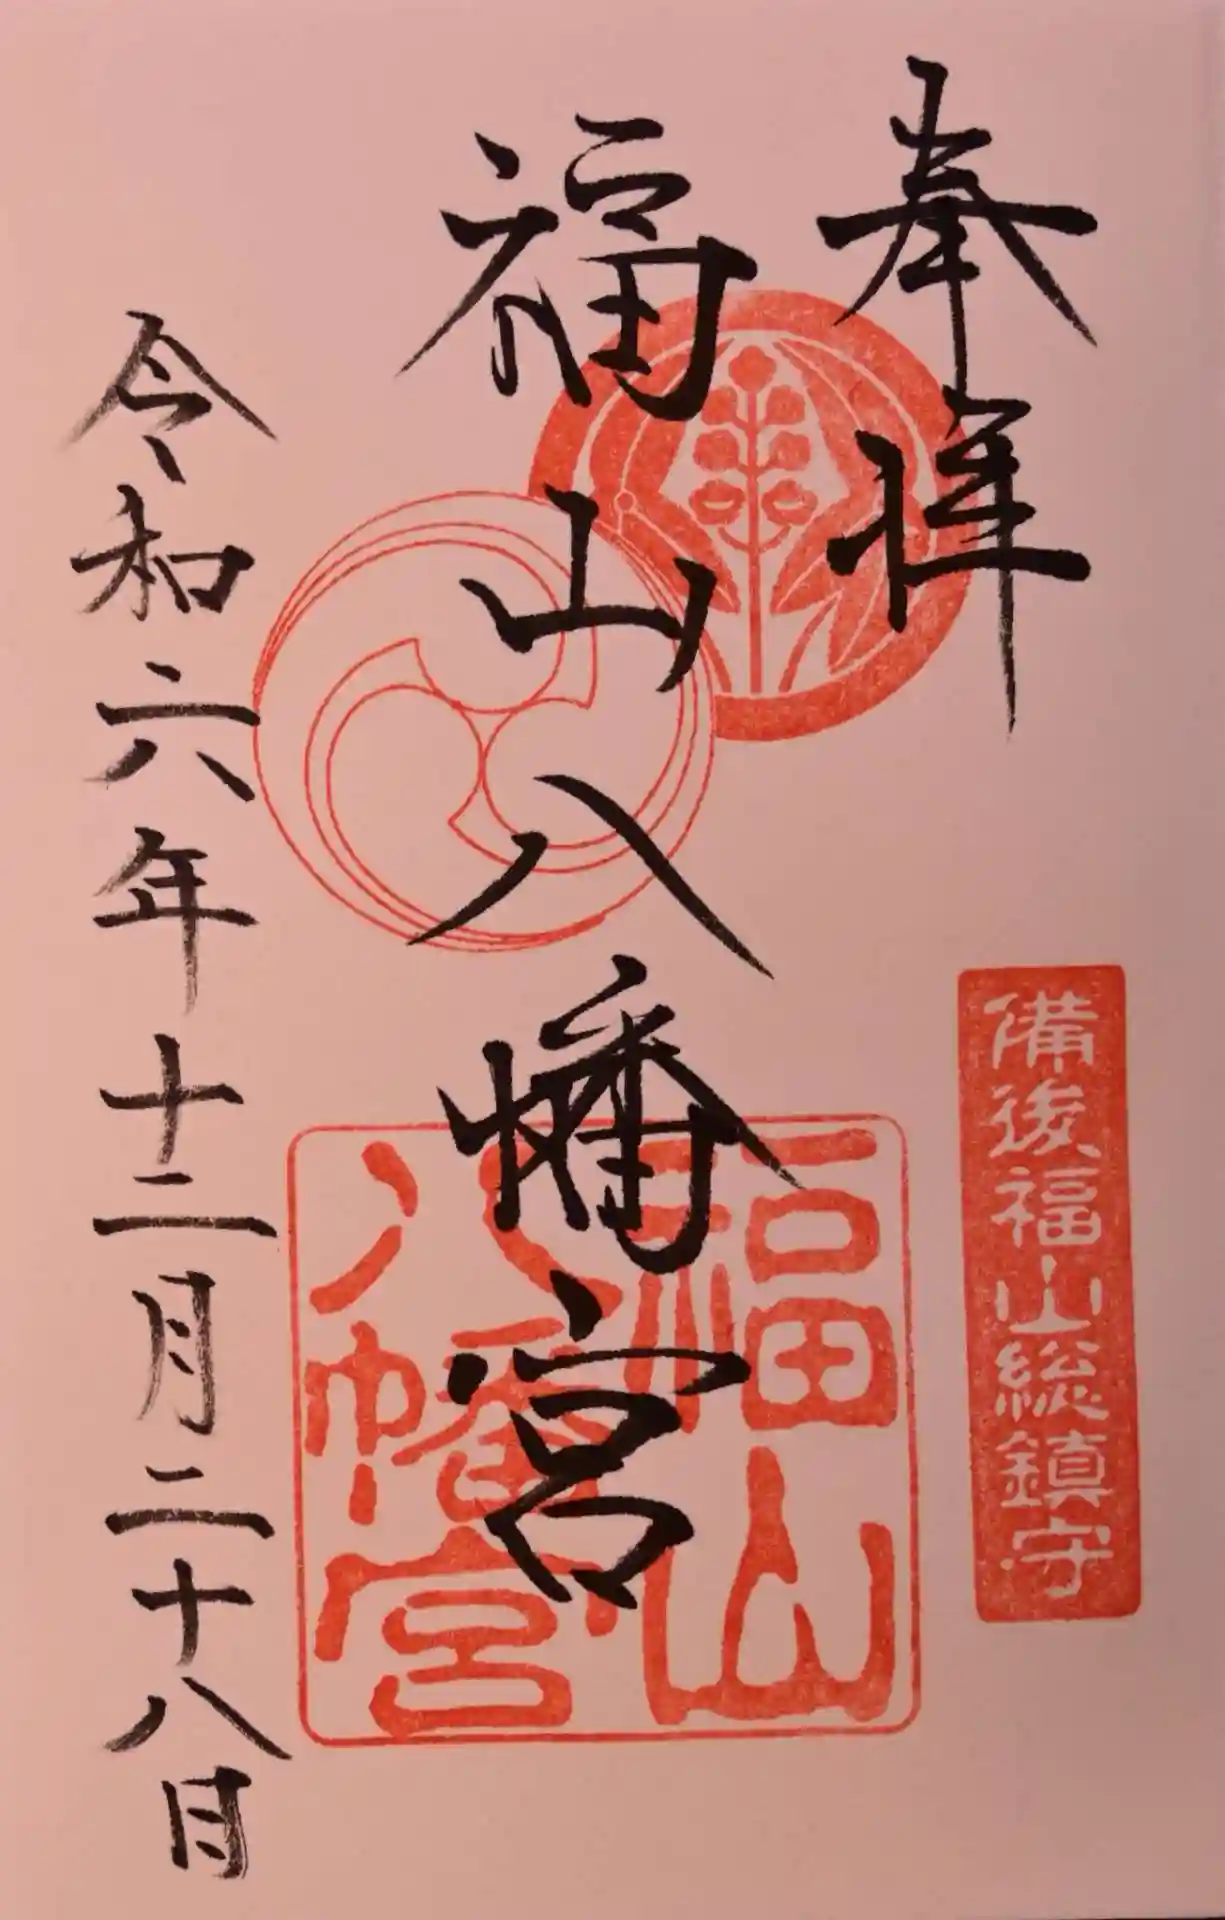 奉拝
備後福山総鎮守
福山八幡宮
福山
八幡宮
令和六年十二月二十八日